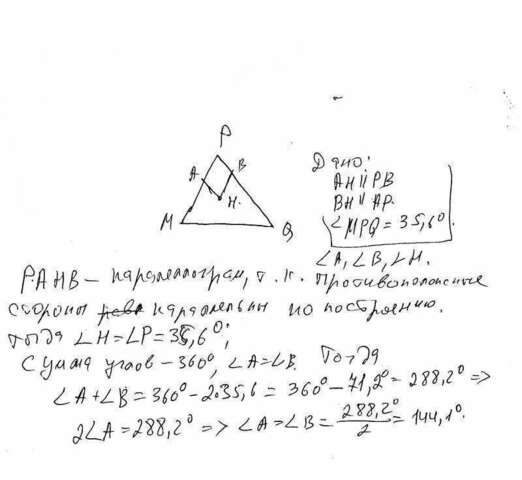 P
A
B
H.
M
Q
Дано:
AH || PB
BH || AP.
∠MPQ = 35,6°.
∠A, ∠B, ∠H.
PAHB – параллелограм, т.к. противоположные
стороны параллельны по построению.
Тогда ∠H = ∠P = 35,6°;
Сумма углов – 360°, ∠A = ∠B. Тогда
∠A + ∠B = 360° - 2·35,6 = 360° - 71,2° = 288,2° =>
2∠A = 288,2° => ∠A = ∠B = 288,2°/2 = 144,1°.